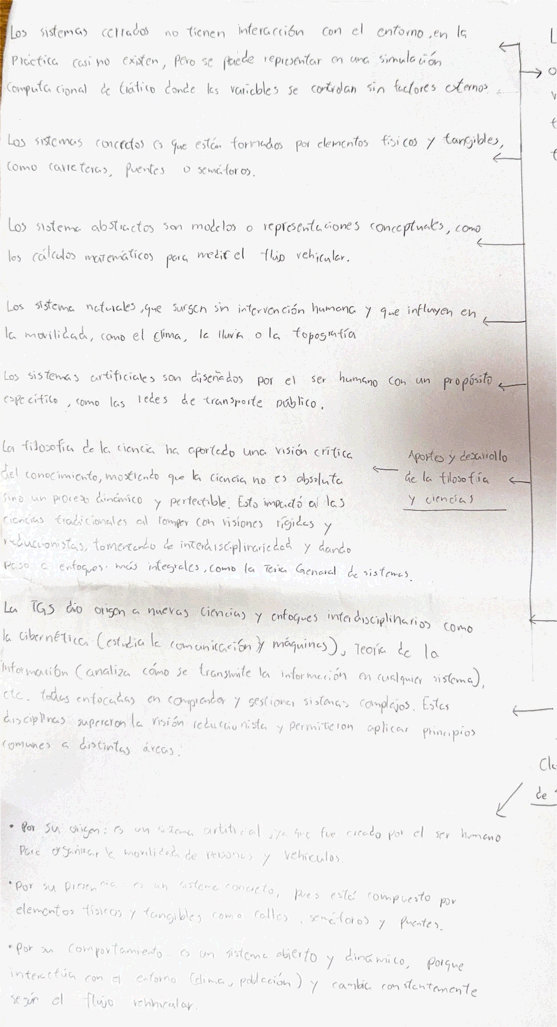 Los sistemas cerrados no tienen interacción con el entorno, en la
práctica casi no existen, pero se puede representar en una simulación
computacional de tráfico donde las variables se controlan sin factores externos.
Los sistemas concretos es que están formados por elementos físicos y tangibles,
como carreteras, puentes o semáforos.
Los sistema abstractos son modelos o representaciones conceptuales, como
los cálculos matemáticos para medir el flujo vehicular.
Los sistema naturales, que surgen sin intervención humana y que influyen en
la movilidad, como el clima, la lluvia o la topografía
Los sistemas artificiales son diseñados por el ser humano con un propósito
específico, como las redes de transporte público.
La filosofía de la ciencia ha aportado una visión crítica
del conocimiento, mostrando que la ciencia no es absoluta
sino un proceso dinámico y perfectible. Esto impactó en las
ciencias tradicionales al romper con visiones rígidas y
reduccionistas, fomentando la interdisciplinariedad y dando
paso a enfoques más integrales, como la Teoría General de sistemas.
Aportes y desarrollo
de la filosofía
y ciencias
La TGS dio origen a nuevas ciencias y enfoques interdisciplinarios como
la cibernética (estudia la comunicación y máquinas), Teoría de la
Información (analiza cómo se transmite la información en cualquier sistema),
etc. todas enfocadas en comprender y gestionar sistemas complejos. Estas
disciplinas superaron la visión reduccionista y permitieron aplicar principios
comunes a distintas áreas.
Cla
de
• Por su origen: es un sistema artificial, ya que fue creado por el ser humano
para organizar la movilidad de personas y vehículos
• Por su es un sistema concreto, pues está compuesto por
elementos físicos y tangibles como calles, semáforos y puentes.
• Por su comportamiento es un sistema abierto y dinámico, porque
interactúa con el entorno (clima, población) y cambia constantemente
según el flujo vehicular.